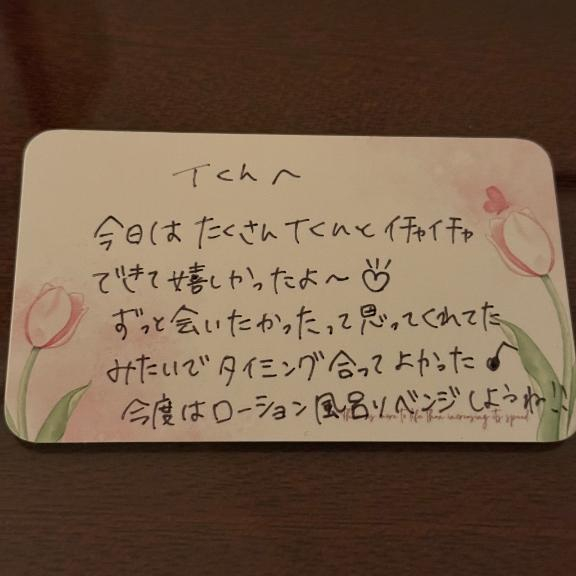 Tくんへ
今日はたくさんTくんとイチャイチャ
できて嬉しかったよ〜♡
ずっと会いたかったって思ってくれてた
みたいでタイミング合ってよかった♪
今度はローション風呂リベンジしようね!!
to life than increasing its speed